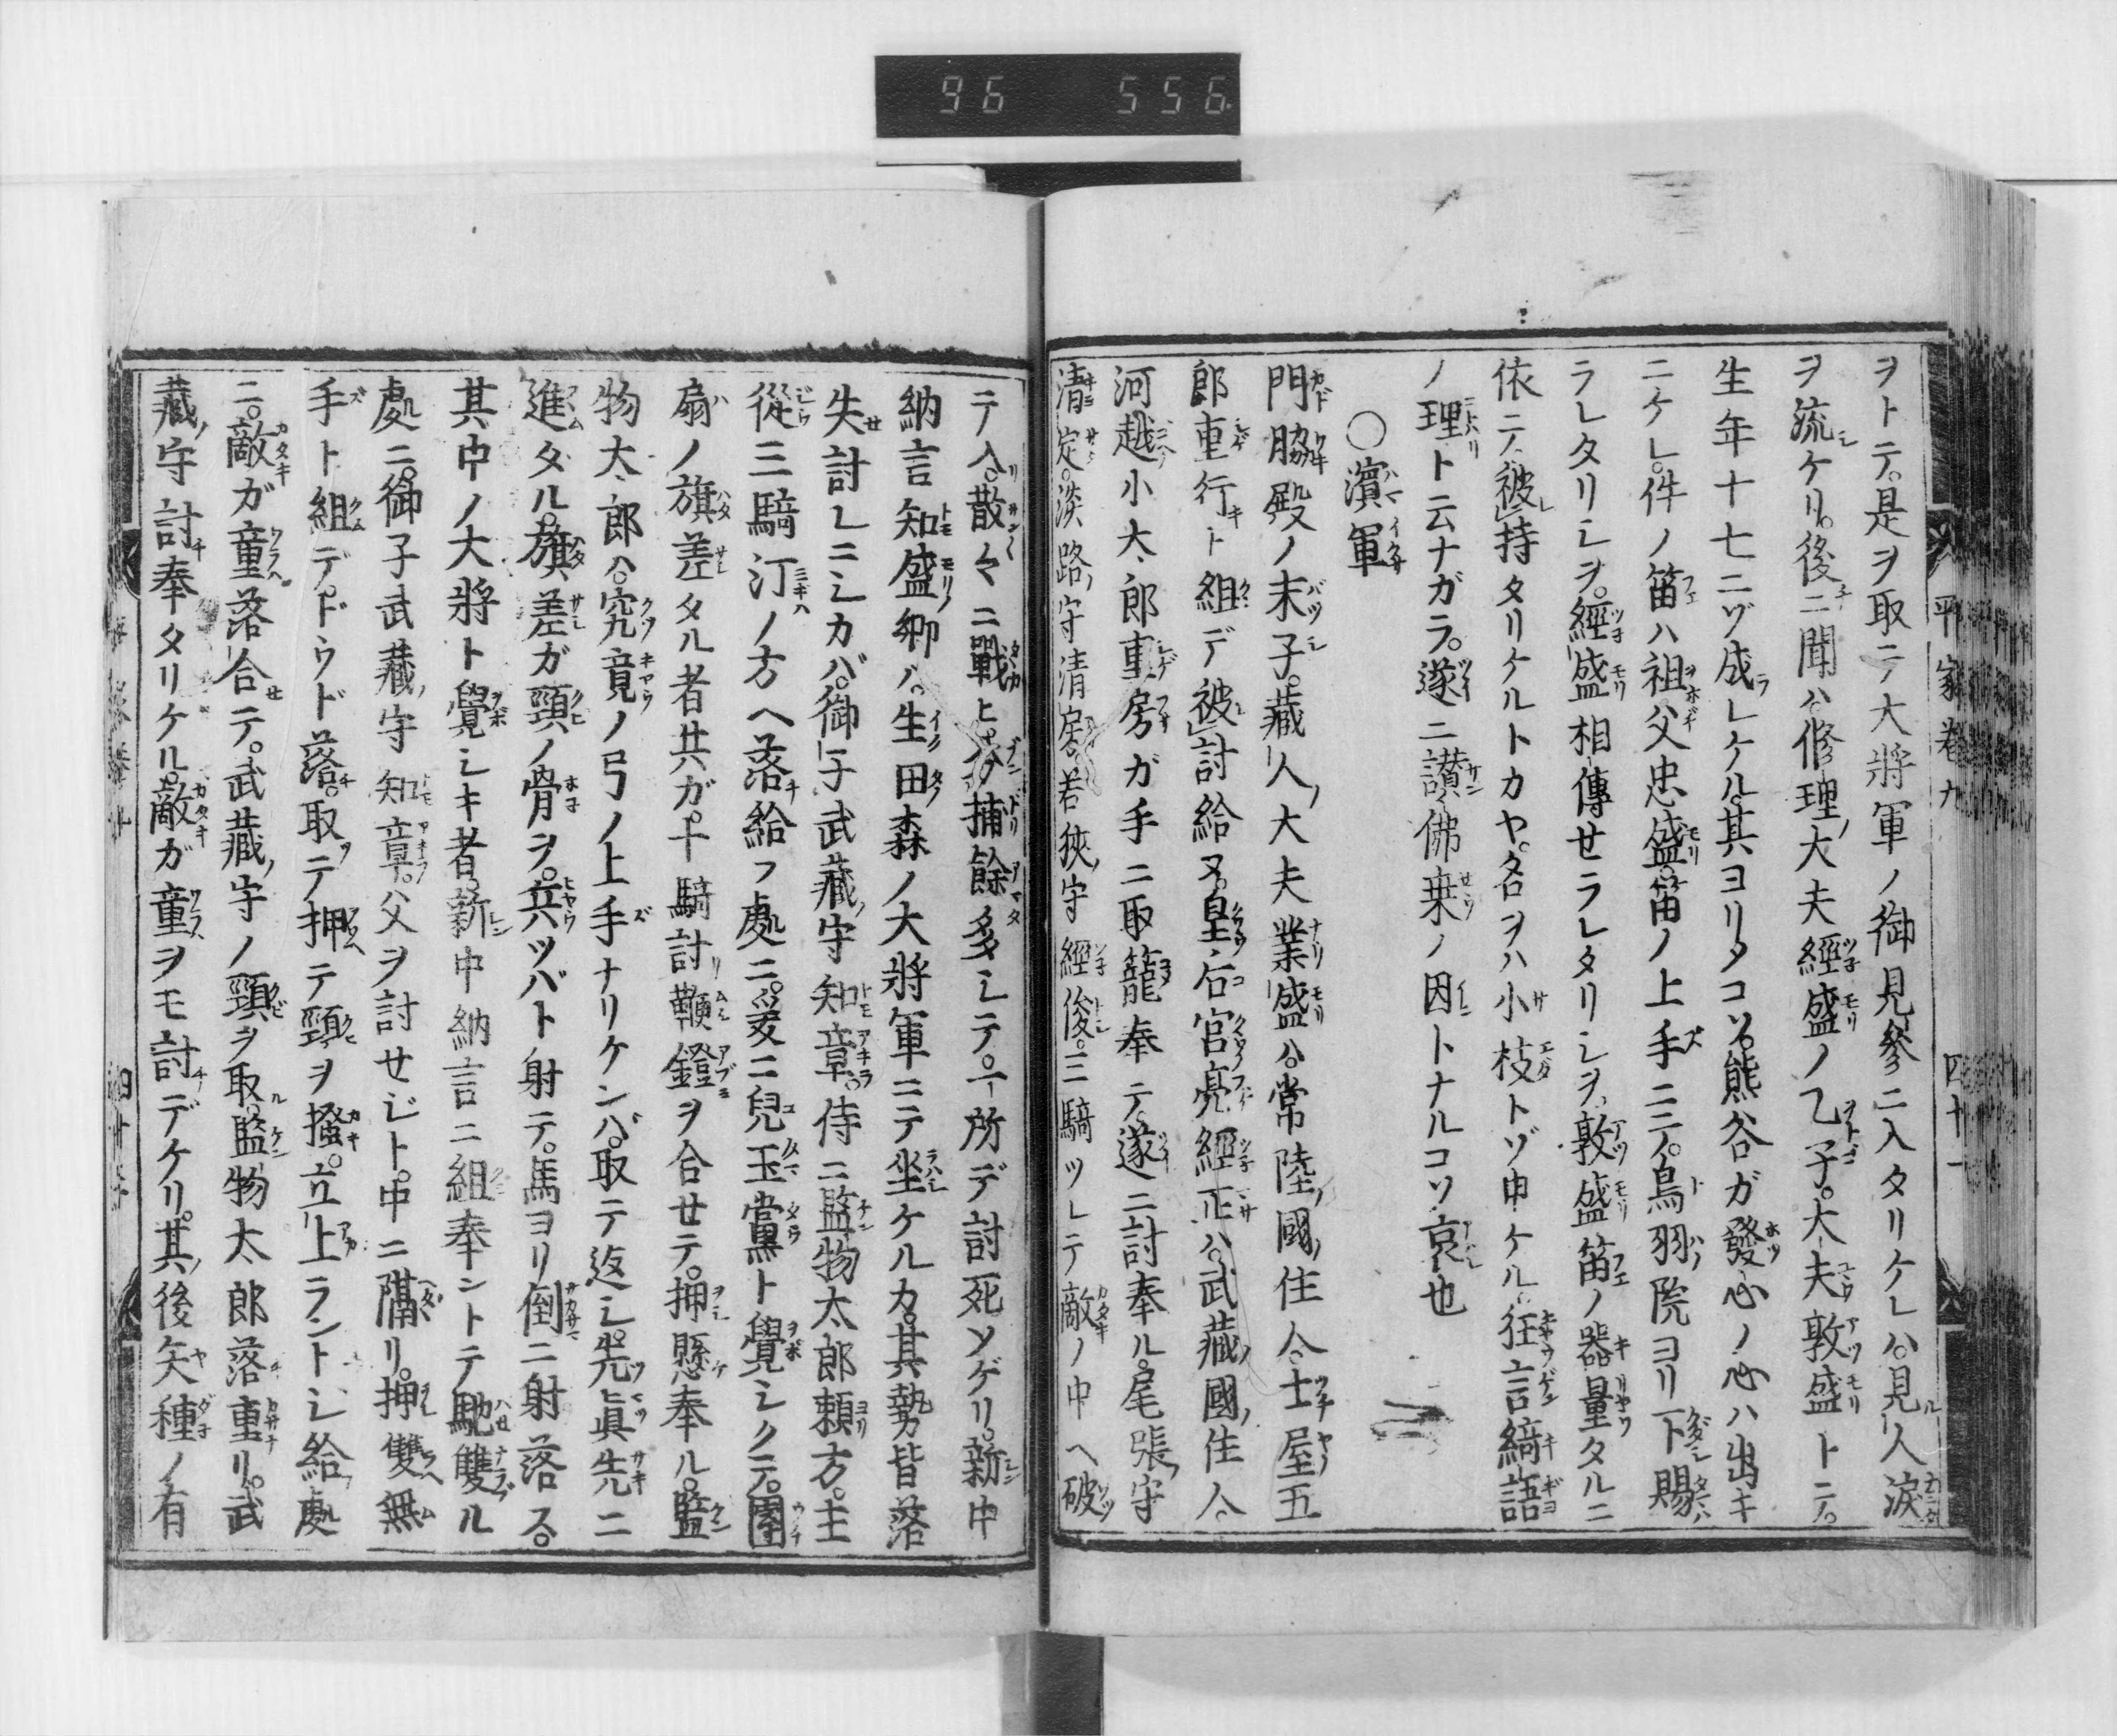 96 556
平家巻九 四十一
ヲトテ。是ヲ取ニテ大將軍ノ御見參ニ入タリケレハ。見人涙
ヲ流ケリ。後ニ聞ハ。修理大夫經盛ノ乙子。大夫敦盛トニテ。
生年十七ニゾ成レケル。其ヨリメコソ。熊谷ガ發心ノ心ハ出キ
ニケレ。件ノ笛ハ祖父忠盛。笛ノ上手ニテ。鳥羽院ヨリ下賜
ラレタリシヲ。經盛相傳せラレタリシヲ。敦盛笛ノ器量タルニ
依ニテ。被持タリケルトカヤ。名ヲハ小枝トゾ申ケル。狂言綺語
ノ理ト云ナガラ。遂ニ讃佛乗ノ因トナルコソ哀也
○濱軍
門脇殿ノ末子。藏人大夫業盛ハ。常陸國住人。土屋五
郎重行ト組デ被討給ヌ。皇后宮亮經正ハ。武藏國住人。
河越小太郎重房ガ手ニ取籠奉テ。遂ニ討奉ル。尾張守
清定。淡路守清房。若狹守經俊。三騎ツレテ敵ノ中ヘ破
テ入。散々ニ戰ヒ。分捕餘多シテ。一所デ討死ソゲリ。新中
納言知盛卿ハ。生田森ノ大將軍ニテ坐ケルカ。其勢皆落
失討レニシカバ。御子武藏守知章。侍ニ監物太郎頼方。主
從三騎汀ノ方ヘ落給フ處ニ。爰ニ兒玉黨ト覺シクテ。團
扇ノ旗差タル者共ガ。十騎討鞭鐙ヲ合せテ。押懸奉ル。監
物太郎ハ。究竟ノ弓ノ上手ナリケンバ。取テ返シ。先眞先ニ
進タル。旗差ガ頸ノ骨ヲ。兵ツバト射テ。馬ヨリ倒ニ射落ス。
其中ノ大將ト覺シキ者。新中納言ニ組奉ントテ馳雙ル
處ニ。御子武藏守知章。父ヲ討せジト。中ニ隔リ。押雙無
手ト組デ。ドウド落。取テ押テ頸ヲ掻。立上ラントシ給處
ニ。敵ガ童落合テ。武藏守ノ頸ヲ取。監物太郎落重リ。武
藏守討奉タリケル。敵ガ童ヲモ討デケリ。其後矢種ノ有